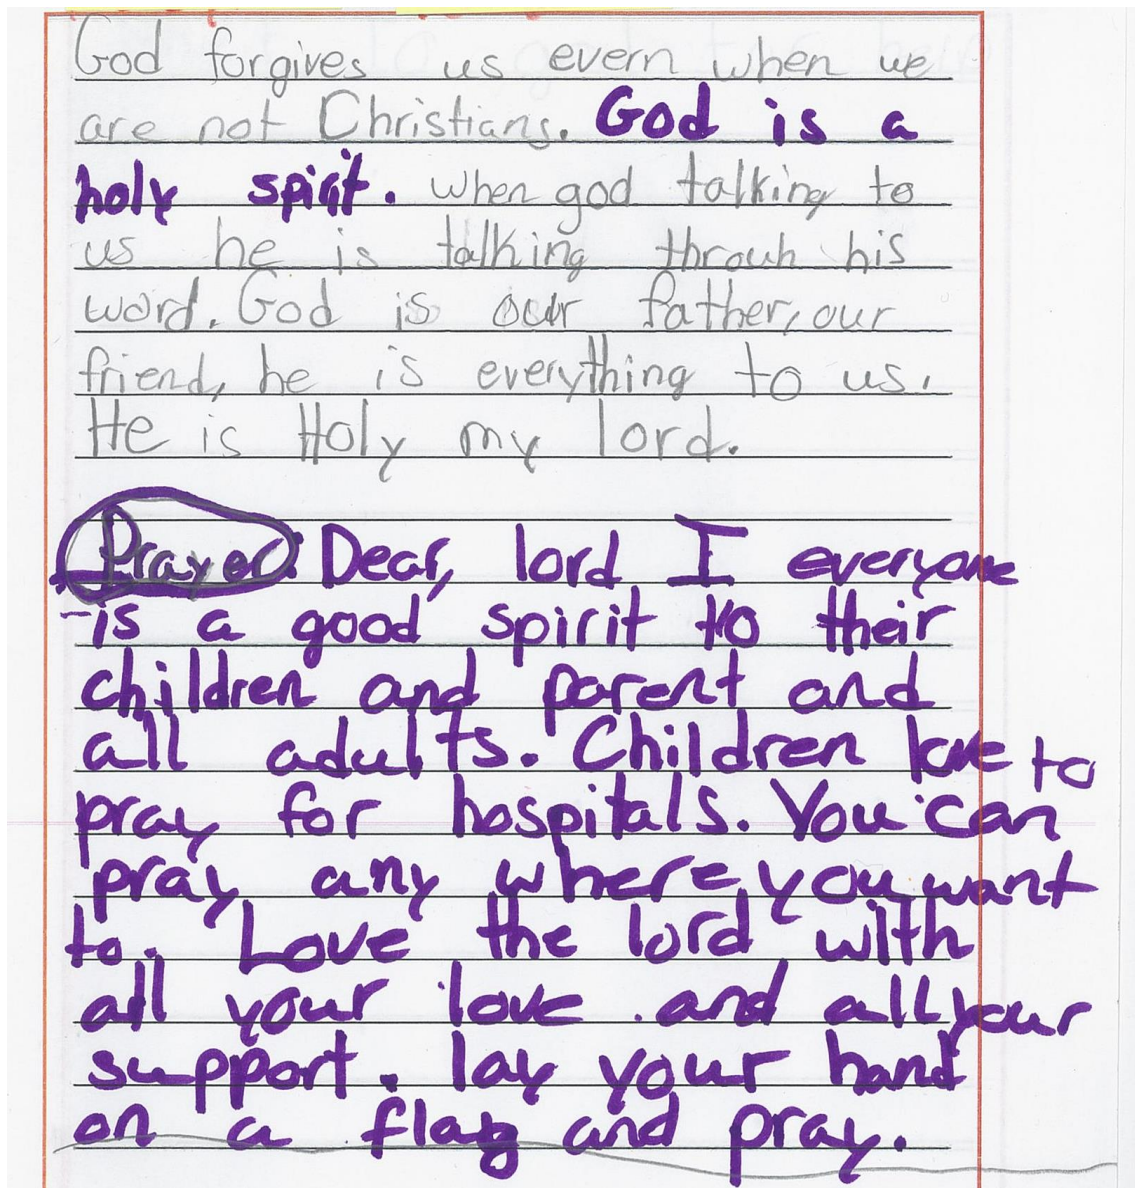 God forgives us evern when we
are not Christians. God is a
holy spirit. when god talking to
us he is talking throuh his
word. God is our father, our
friend, he is everything to us.
He is Holy my lord.
Prayer: Dear, lord I everyone
is a good spirit to their
children and parent and
all adults. Children love to
pray for hospitals. You can
pray any where you want
to. Love the lord with
all your love and all your
support. lay your hand
on a flag and pray.